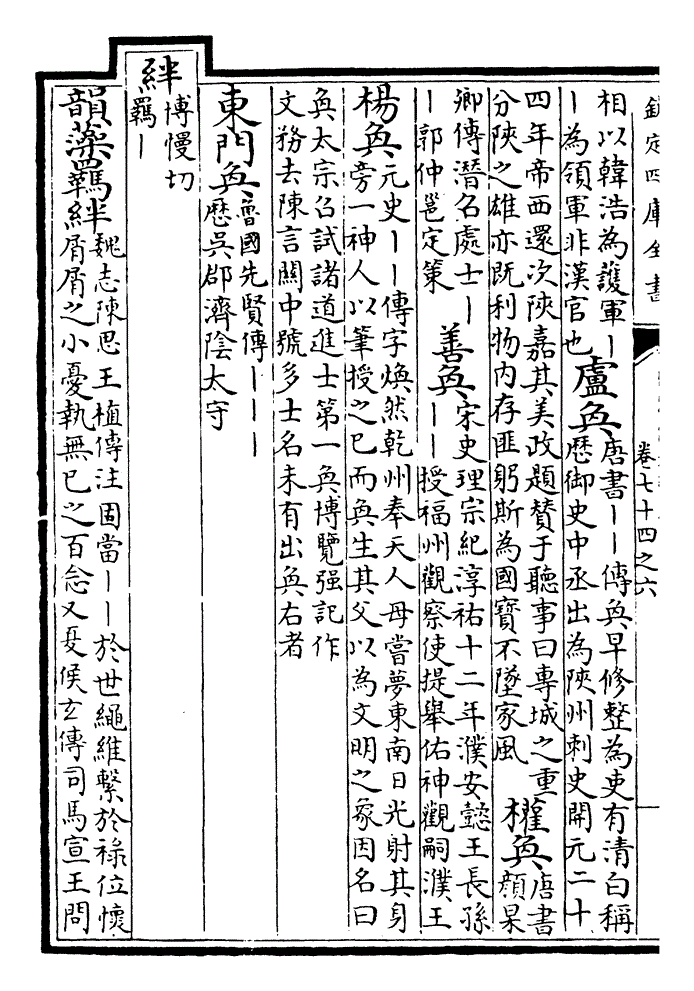 欽定四庫全書
卷七十四之六
相以韓浩為護軍｜
｜為領軍非漢官也
盧奐
唐書｜｜傳奐早修整為吏有清白稱
歷御史中丞出為陜州刺史開元二十
四年帝西還次陜嘉其美政題贊于聽事曰專城之重
分陜之雄亦既利物内存匪躬斯為國寶不墜家風
權奐
唐書
顔杲
卿傳潛名處士｜
｜郭仲邕定策
善奐
宋史理宗紀淳祐十二年濮安懿王長孫
｜｜授福州觀察使提舉佑神觀嗣濮王
楊奐
元史｜｜傳字煥然乾州奉天人母嘗夢東南日光射其身
旁一神人以筆授之已而奐生其父以為文明之象因名曰
奐太宗召試諸道進士第一奐博覽强記作
文務去陳言關中號多士名未有出奐右者
東門奐
魯國先賢傳｜｜｜
歷吳郡濟陰太守
絆
博慢切
羈｜
韻藻羈絆
魏志陳思王植傳注固當｜｜於世繩維繫於祿位懷
屑屑之小憂執無已之百念又夏候玄傳司馬宣王問